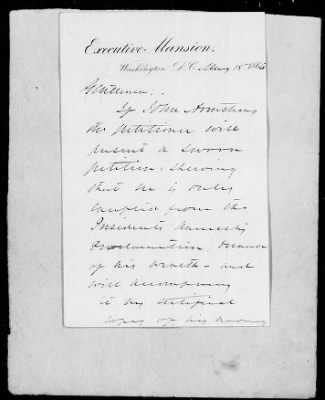 Executive Mansion,
Washington D.C. 18 1865
Gentlemen:
If John Armstrong
the petitioner will
present a sworn
petition, shewing
that he is only
excepted from the
Presidents Amnesty
Proclamation because
of his wealth - and
will accompany
it by certified
copy of his having